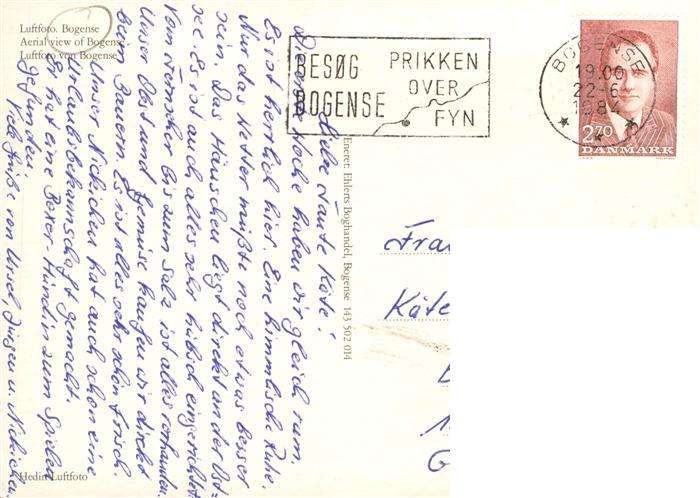 Luftfoto. Bogense
Aerial view of Bogense
Luftfoto von Bogense
BESØG
BOGENSE
PRIKKEN
OVER
FYN
BOGENSE
19.00
22-6
1984
2.70
DANMARK
Eneret: Ehlerts Boghandel, Bogense 143 502 014
Liebe Tante Käte!
Diese Woche haben wir gleich rum.
Es ist herrlich hier. Eine himmlische Ruhe.
Nur das Wetter müßte noch etwas besser
sein. Das Häuschen liegt direkt an der Ost-
see. Es ist auch alles sehr hübsch eingerichtet
vom Fernseher bis zum Salz ist alles vorhanden.
Unser Obst und Gemüse kaufen wir direkt
beim Bauern. Es ist alles sehr schön frisch.
Unser Nickichen hat auch schon eine
Urlaubsbekanntschaft gemacht.
Er hat eine Boxer-Hündin zum Spielen
gefunden.
Viele Grüße von Ursel, Jürgen u. Nickichen
Frau
Käte
Hedin Luftfoto